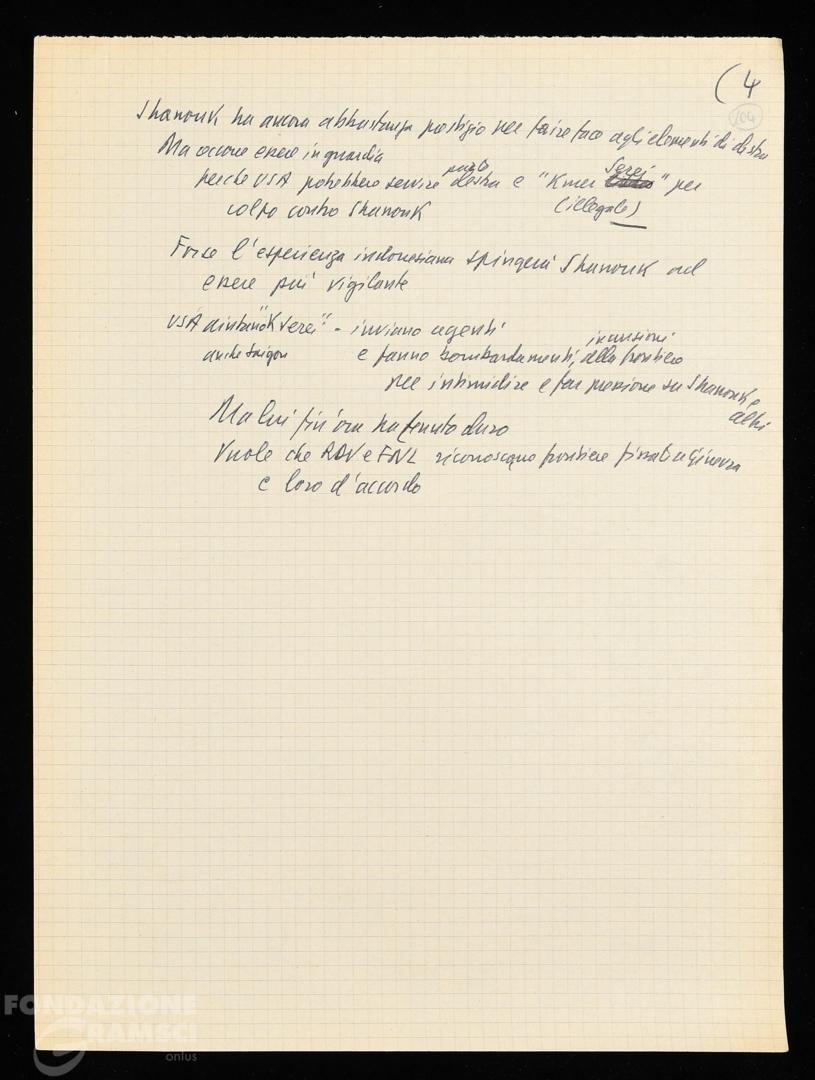 (4
104
Shanouk ha ancora abbastanza prestigio per faire face agli elementi di destra
Ma occorre essere in guardia
perché USA potrebbero servire parte destra e "Kmer Serei" per
(illegale)
colpo contro Shanouk
Forse l'esperienza indonesiana spingerà Shanouk ad
essere più vigilante
USA aiutano "K Serei" - inviano agenti
anche Saigon e fanno bombardamenti, incursioni alla frontiera
per intimidire e far pressione su Shanouk e
altri
Ma lui fin'ora ha tenuto duro
Vuole che RDV e FNL riconoscano frontiere fissate a Ginevra
e loro d'accordo
FONDAZIONE
GRAMSCI
onlus